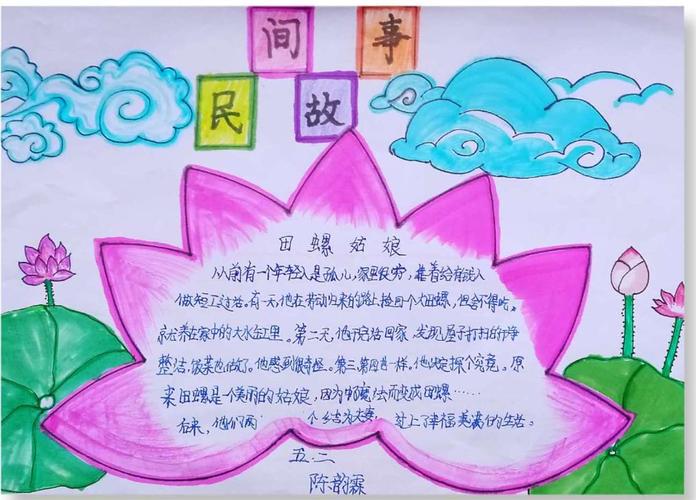 民间故事
田螺姑娘
从前有一个年轻人是孤儿,家里很穷,靠着给有钱人
做短工过活。有一天,他在劳动归来的路上捡回个大田螺,但舍不得吃,
就养在家中的大水缸里。第二天,他干完活回家,发现屋子打扫的干净
整洁,饭菜也做了。他感到很奇怪。第三、第四也一样。他决定探个究竟。原
来田螺是一个美丽的姑娘,因为中魔法而变成田螺……
后来,他们两个结为夫妻 过上了幸福美满的生活。
五.二
陈韵霖